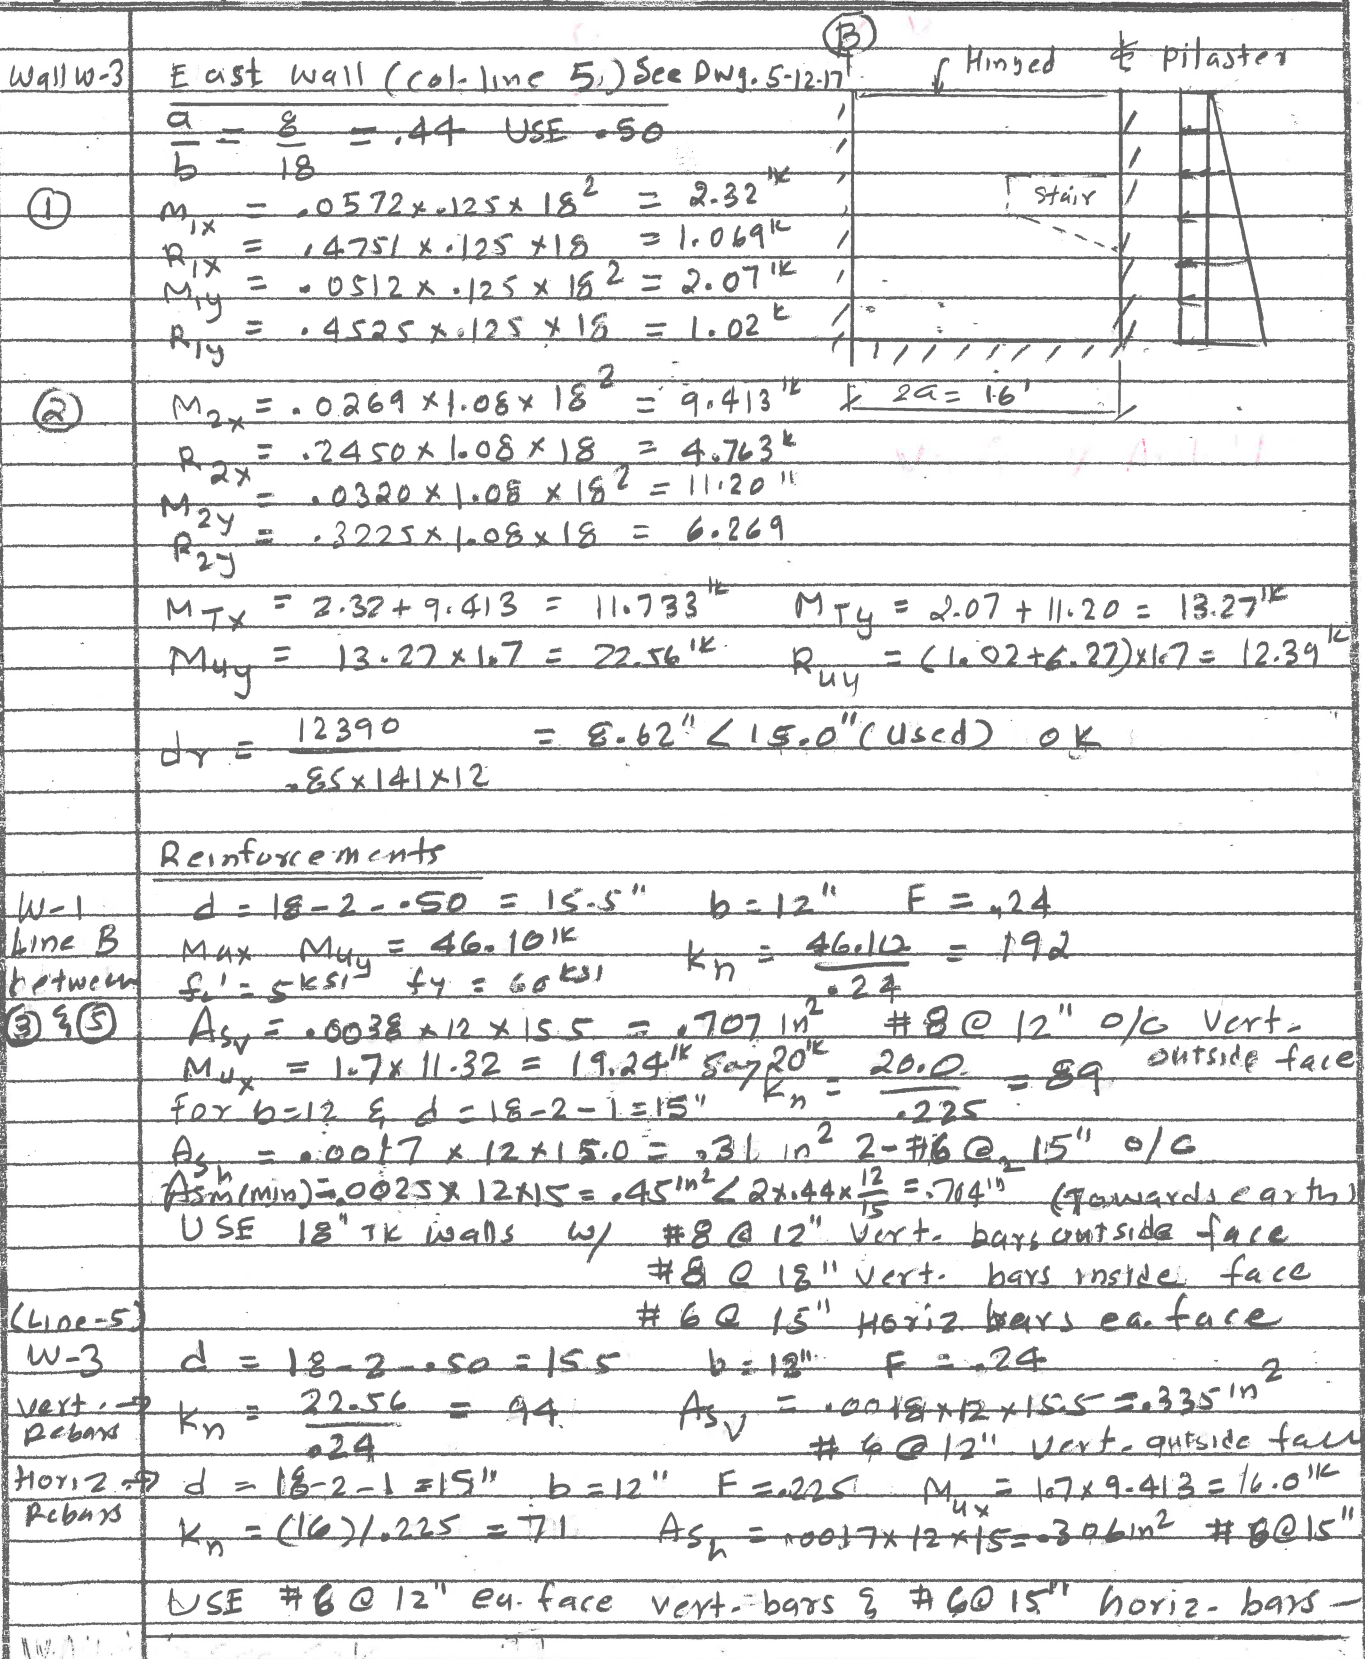 Wall W-3 East Wall (Col. line 5.) See Dwg. 5-12-17
B
Hinged
℄ Pilaster
a/b = 8/18 = .44 USE .50
① M1x = .0572 x .125 x 18² = 2.32 'K
R1x = .4751 x .125 x 18 = 1.069K
M1y = .0512 x .125 x 18² = 2.07 'K
R1y = .4525 x .125 x 18 = 1.02 K
Stair
2a = 16'
② M2x = .0269 x 1.08 x 18² = 9.413 'K
R2x = .2450 x 1.08 x 18 = 4.763 K
M2y = .0320 x 1.08 x 18² = 11.20 "
R2y = .3225 x 1.08 x 18 = 6.269
MTx = 2.32 + 9.413 = 11.733 'K MTy = 2.07 + 11.20 = 13.27 'K
Muy = 13.27 x 1.7 = 22.56 'K. Ruy = (1.02+6.27)x1.7 = 12.39 'K
dr = 12390 / .85x141x12 = 8.62" < 15.0" (Used) OK
Reinforcements
W-1
Line B
between
③ & ⑤
d = 18-2-.50 = 15.5" b = 12" F = .24
Max Muy = 46.10 'K Kn = 46.10/.24 = 192
fc' = 5 ksi fy = 60 ksi
Asv = .0038 x 12 x 15.5 = .707 in² #8 @ 12" o/c Vert. outside face
Mux = 1.7 x 11.32 = 19.24 'K Say 20 'K Kn = 20.0/.225 = 89
for b=12 & d = 18-2-1 = 15"
Ash = .0017 x 12 x 15.0 = .31 in² 2-#6 @ 15" o/c
Asm(min) = .0025 x 12x15 = .45 in² < 2x.44x 12/15 = .704 in² (Towards earth)
USE 18" TK walls w/ #8 @ 12" Vert. bars outside face
#8 @ 18" Vert. bars inside face
#6 @ 15" Horiz bars ea. face
(Line-5)
W-3 d = 18-2-.50 = 15.5 b = 12" F = .24
Vert. → Rebars Kn = 22.56/.24 = 94 Asv = .0018x12x15.5 = .335 in²
#6 @ 12" Vert. outside face
Horiz → Rebars d = 18-2-1 = 15" b = 12" F = .225 Mux = 1.7 x 9.413 = 16.0 'K
Kn = (16)/.225 = 71 Ash = .0017x12x15 = .306 in² #6@15"
USE #6 @ 12" ea. face vert. bars & #6@ 15" horiz. bars –